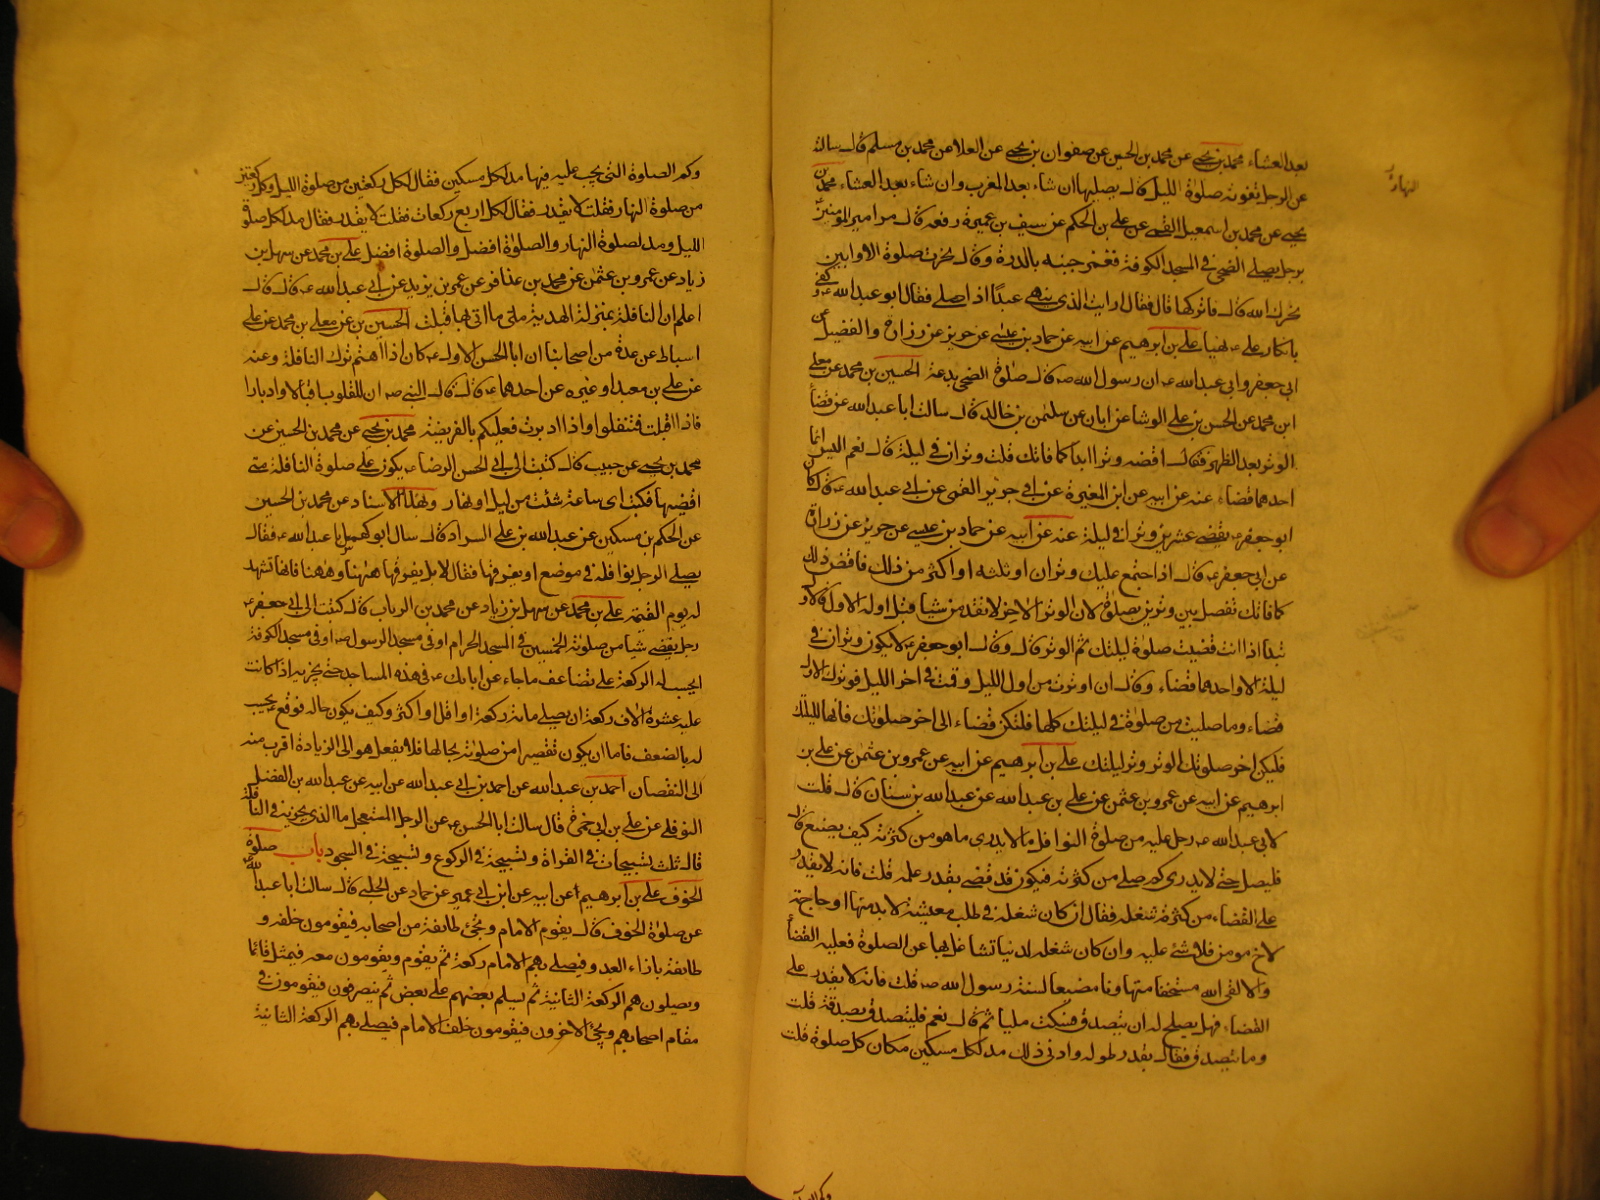 بعد العشاء محمد بن يحيى عن محمد بن الحسين عن صفوان بن يحيى عن العلا عن محمد بن مسلم قال سالته
عن الرجل تفوته صلوة الليل قال يصليها ان شاء بعد المغرب وان شاء بعد العشاء محمد بن
يحيى عن محمد بن اسمعيل القمى عن على بن الحكم عن سيف بن عميرة رفعه قال مر امير المومنين
برجل يصلى الضحى فى المسجد الكوفة فغمز جنبه بالدرة وقال نحرت صلوة الاوابين
نحرك الله قال فاتركها قال فقال ارايت الذى ينهى عبدا اذا صلى فقال ابو عبد الله ع وكفى
بانكار على ع نهيا على بن ابرهيم عن ابيه عن حماد بن عيسى عن حريز عن زرارة والفضيل عن
ابى جعفر وابى عبد الله ع ان رسول الله ص قال صلوة الضحى بدعة الحسين بن محمد عن معلى
ابن محمد عن الحسن بن على الوشا عن ابان عن سليمن بن خالد قال سالت ابا عبد الله عن قضا
الوتر بعد الظهر فقال اقضه وترا ابدا كما فاتك قلت وتران فى ليلة قال نعم اليس انما
احدهما قضاء عنه عن ابيه عن ابن المغيرة عن ابى جرير القمى عن ابى عبد الله ع قال كا
ابو جعفر ع يقضى عشرين وترا فى ليلة عنه عن ابيه عن حماد بن عيسى عن حريز عن زرارة
عن ابى جعفر ع قال اذا اجتمع عليك وتران او ثلثه او اكثر من ذلك فاقض ذلك
كما فاتك تفصل بين وترين بصلوة لان الوتر الاخر لا تقدمن شيا قبل اوله الاول فالاول
تبدا اذا انت قضيت صلوة ليلتك ثم الوتر قال وقال ابو جعفر ع لا يكون وتران فى
ليلة الا واحدهما قضاء وقال ان اوترت من اول الليل وقمت فى اخر الليل فوترك الاول
قضاء وما صليت من صلوة فى ليلتك كلها فلتكن قضاء الى اخر صلوتك فانها لليلتك
فليكن اخر صلوتك الوتر وتر ليلتك على بن ابرهيم عن ابيه عن عمرو بن عثمن عن على بن
ابرهيم عن ابيه عن عمرو بن عثمن عن على بن عبد الله عن عبد الله بن سنان قال قلت
لابى عبد الله ع رجل عليه من صلوة النوافل ما لا يدرى ما هو من كثرته كيف يصنع قال
فليصل حتى لا يدرى كم صلى من كثرته فيكون قد قضى بقدر علمه قلت فانه لا يقدر
على القضاء من كثرة شغله فقال ان كان شغله فى طلب معيشة لا بد منها او حاجة
لاخ مومن فلا شئ عليه وان كان شغله لدنيا تشاغل بها عن الصلوة فعليه القضا
والا لقى الله مستخفا متهاونا مضيعا لسنة رسول الله ص قلت فانه لا يقدر على
القضاء فهل يصلح له ان يتصدق فسكت مليا ثم قال نعم فليتصدق بصدقة قلت
وما يتصدق فقال بقدر طوله وادنى ذلك مد لكل مسكين مكان كل صلوة قلت
النهار
وكم الصلوة التى يجب عليه فيها مد لكل مسكين فقال لكل ركعتين من صلوة الليل وكل ركعتين
من صلوة النهار فقلت لا يقدر فقال لكل اربع ركعات فقلت لا يقدر فقال مد لكل صلوة
الليل ومد لصلوة النهار والصلوة افضل والصلوة افضل على بن محمد عن سهل بن
زياد عن عمرو بن عثمن عن محمد بن عذافر عن عمر بن يزيد عن ابى عبد الله ع قال قال
اعلم ان النافلة بمنزلة الهدية متى ما اتى بها قبلت الحسين بن عن معلى بن محمد عن على
اسباط عن عدة من اصحابنا ان ابا الحسن الاول ع كان اذا اهتم ترك النافلة وعنه
عن على بن معبد او غيره عن احدهما ع قال قال النبى ص ان للقلوب اقبالا وادبارا
فاذا اقبلت فتنفلوا واذا ادبرت فعليكم بالفريضة محمد بن يحيى عن محمد بن الحسين عن
محمد بن يحيى عن حبيب قال كتبت الى ابى الحسن الرضا ع يكون على صلوة النافلة متى
اقضيها فكتب اى ساعة شئت من ليل او نهار وبهذا الاسناد عن محمد بن الحسين
عن الحكم بن مسكين عن عبد الله بن على السراد قال سال ابو كهمس ابا عبد الله ع فقال
يصلى الرجل نوافله فى موضع او يفرقها فقال لا بل يفرقها ههنا وههنا فانها تشهد
له يوم القيمة على بن محمد عن سهل بن زياد عن محمد بن الريان قال كتبت الى ابى جعفر ع
رجل يقضى شيا من صلوته الخمسين فى المسجد الحرام او فى مسجد الرسول ص او فى مسجد الكوفة
ايحسب له الركعة على تضاعف ما جاء عن ابائك ع فى هذه المساجد حتى يجزيه اذا كانت
عليه عشرة الاف ركعة ان يصلى مائة ركعة او اقل او اكثر وكيف يكون حاله فوقع ع يحسب
له بالضعف فاما ان يكون تقصيرا من صلوته بحالها فلا يفعل هو الى الزيادة اقرب منه
الى النقصان احمد بن عبد الله عن احمد بن ابى عبد الله عن ابيه عن عبد الله بن الفضل
النوفلى عن على بن ابى حمزة قال سالت ابا الحسن ع عن الرجل المستعجل ما الذى يجزيه فى النافلة
قال ثلث تسبيحات فى القراة وتسبيحة فى الركوع وتسبيحة فى السجود باب صلوة
الخوف على بن ابرهيم عن ابيه عن ابن ابى عمير عن حماد عن الحلبى قال سالت ابا عبد الله
عن صلوة الخوف قال يقوم الامام وتجئ طائفة من اصحابه فيقومون خلفه و
طائفة بازاء العدو فيصلى بهم الامام ركعة ثم يقوم ويقومون معه فيمثل قائما
ويصلون هم الركعة الثانية ثم يسلم بعضهم على بعض ثم ينصرفون فيقومون فى
مقام اصحابهم ويجئ الاخرون فيقومون خلف الامام فيصلى بهم الركعة الثانية